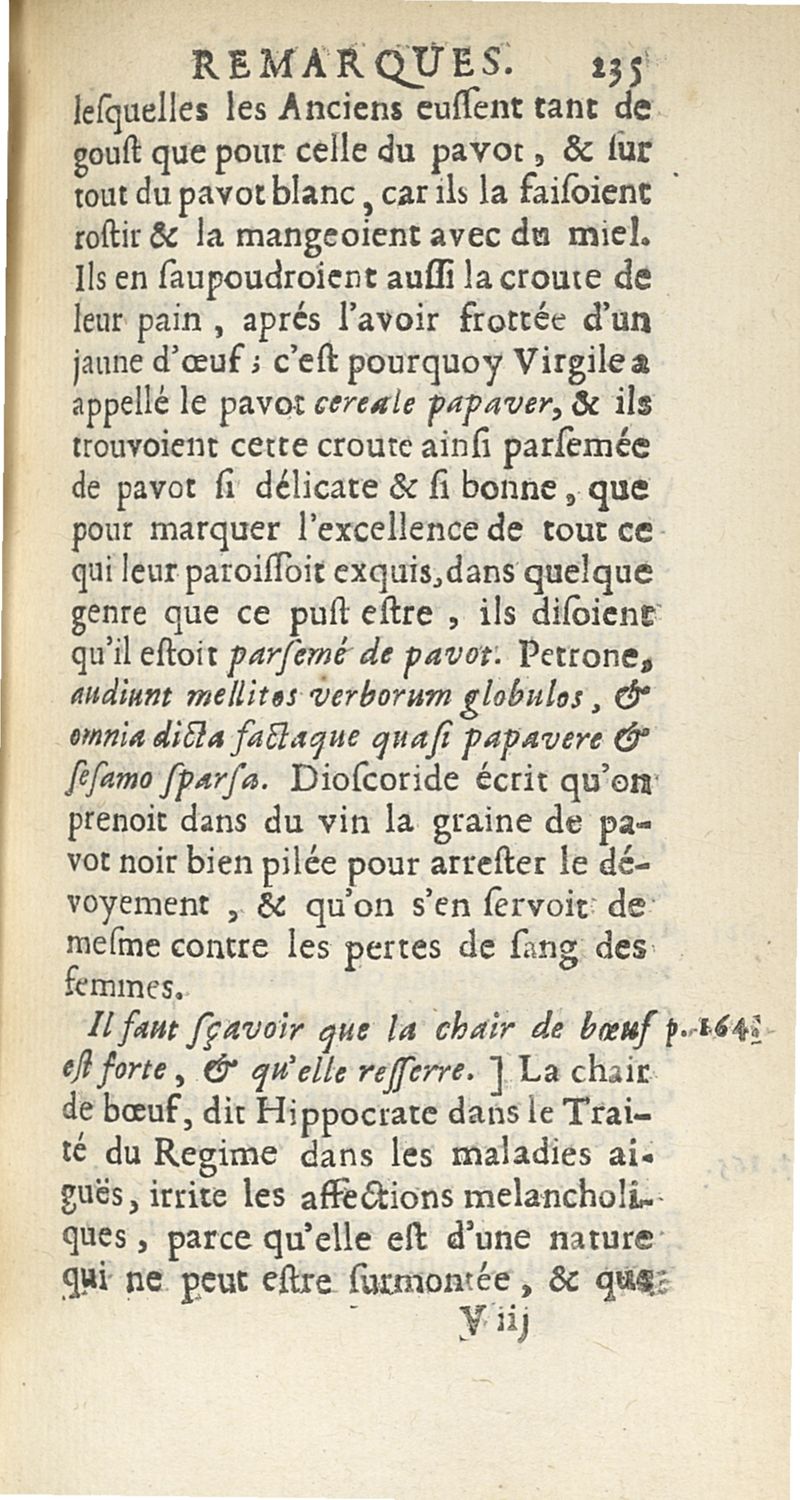 REMARQUES. 235
leſquelles les Anciens euſſent tant de
gouſt que pour celle du pavot, & ſur
tout du pavot blanc, car ils la faiſoient
roſtir & la mangeoient avec du miel.
Ils en ſaupoudroient auſſi la croute de
leur pain, aprés l'avoir frottée d'un
jaune d'œuf; c'eſt pourquoy Virgile a
appellé le pavot cereale papaver, & ils
trouvoient cette croute ainſi parſemée
de pavot ſi délicate & ſi bonne, que
pour marquer l'excellence de tout ce
qui leur paroiſſoit exquis, dans quelque
genre que ce puſt eſtre, ils diſoient
qu'il eſtoit parſemé de pavot. Petrone,
audiunt mellitos verborum globulos, &
omnia dicta factaque quaſi papavere &
ſeſamo ſparſa. Dioſcoride écrit qu'on
prenoit dans du vin la graine de pa-
vot noir bien pilée pour arreſter le dé-
voyement, & qu'on s'en ſervoit de
meſme contre les pertes de ſang des
femmes.
Il faut ſçavoir que la chair de bœuf p. 164.
eſt forte, & qu'elle reſſerre. ] La chair
de bœuf, dit Hippocrate dans le Trai-
té du Regime dans les maladies ai-
guës, irrite les affections melancholi-
ques, parce qu'elle eſt d'une nature
qui ne peut eſtre ſurmontée, & que
V iij